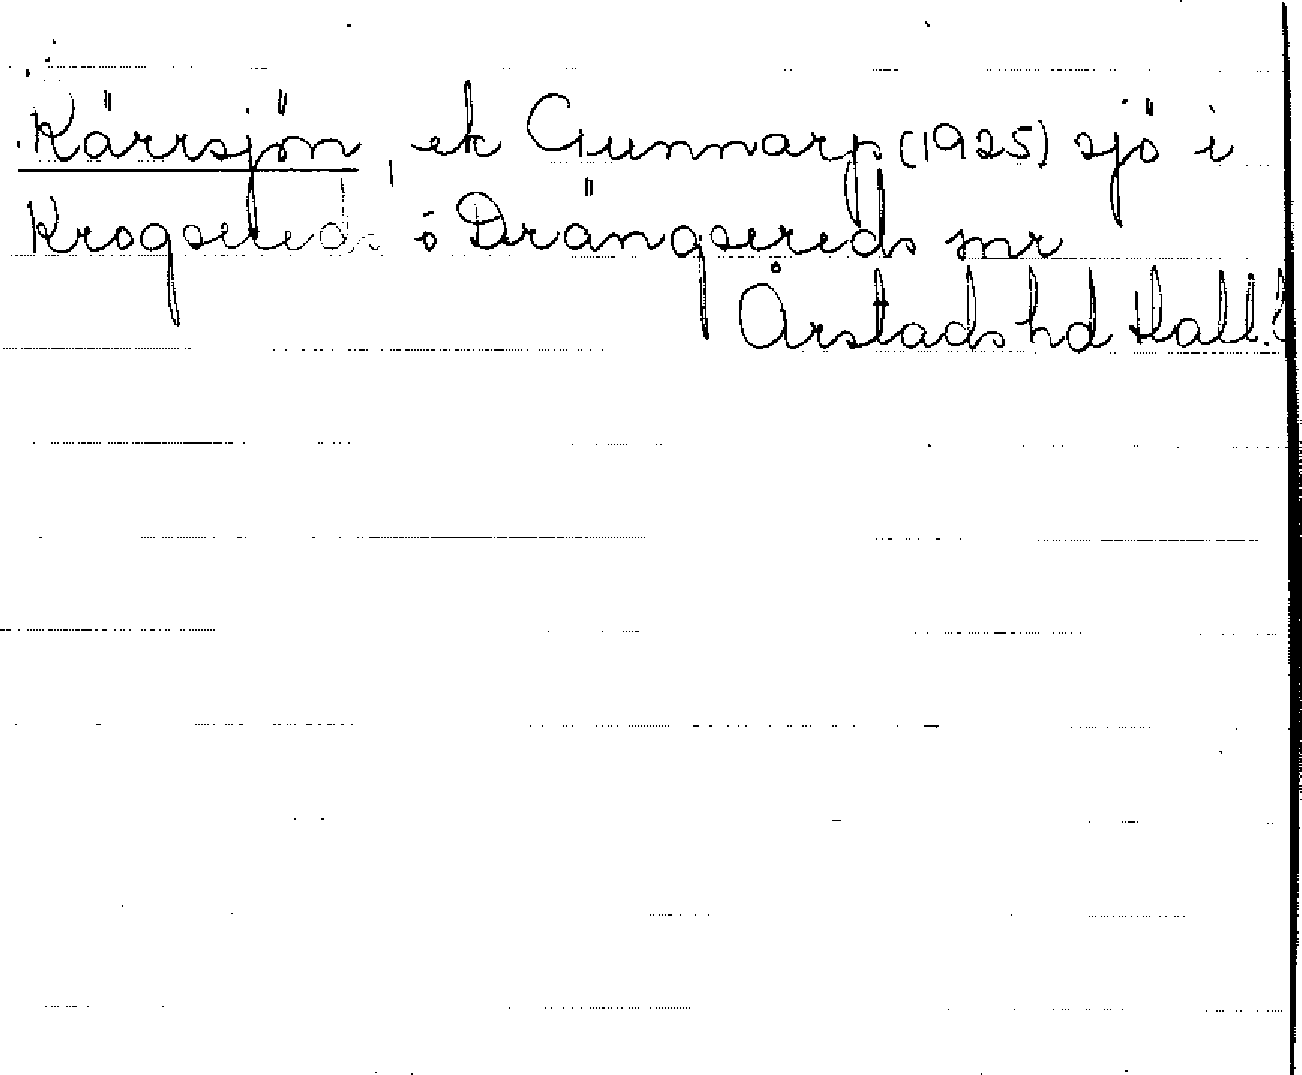 Kärrsjön, ek Gunnarp (1925) sjö i
Krogsereds o Drängsereds snr
Årstads hd Hall.